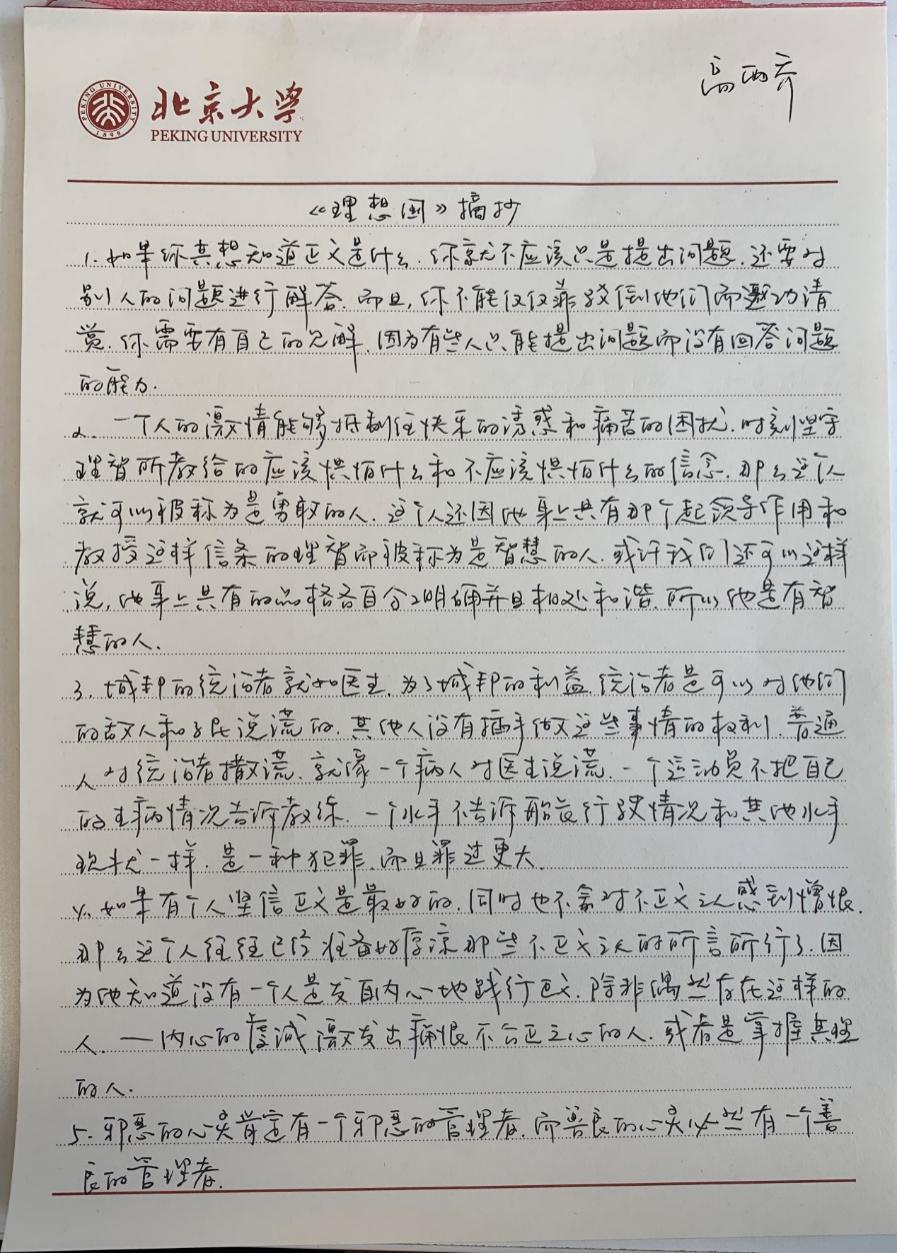 PEKING UNIVERSITY
1898
北京大学
PEKING UNIVERSITY
高丙齐
《理想国》摘抄
1.如果你真想知道正义是什么.你就不应该只是提出问题.还要对
别人的问题进行解答.而且,你不能仅仅靠驳倒他们而邀功请
赏.你需要有自己的见解.因为有些人只能提出问题而没有回答问题
的能力.
2.一个人的激情能够抵制住快乐的诱惑和痛苦的困扰.时刻坚守
理智所教给的应该惧怕什么和不应该惧怕什么的信念.那么这个人
就可以被称为是勇敢的人.这个人还因他身上具有那个起领导作用和
教授这样信条的理智而被称为是智慧的人.或许我们还可以这样
说,他身上具有的品格各自分明确并且相处和谐.所以他是有智
慧的人.
3.城邦的统治者就如医生.为了城邦的利益.统治者是可以对他们
的敌人和子民说谎的.其他人没有插手做这些事情的权利.普通
人对统治者撒谎.就像一个病人对医生说谎.一个运动员不把自己
的生病情况告诉教练.一个水手不告诉船长行驶情况和其他水手
现状一样.是一种犯罪.而且罪过更大.
4.如果有个人坚信正义是最好的.同时也不会对不正义之人感到憎恨.
那么这个人往往已经准备好原谅那些不正义之人的所言所行了.因
为他知道没有一个人是发自内心地践行正义.除非偶然存在这样的
人.—内心的虔诚激发出痛恨不公正之心的人.或者是掌握真理
的人.
5.邪恶的心灵肯定有一个邪恶的管理者.而善良的心灵必然有一个善
良的管理者.